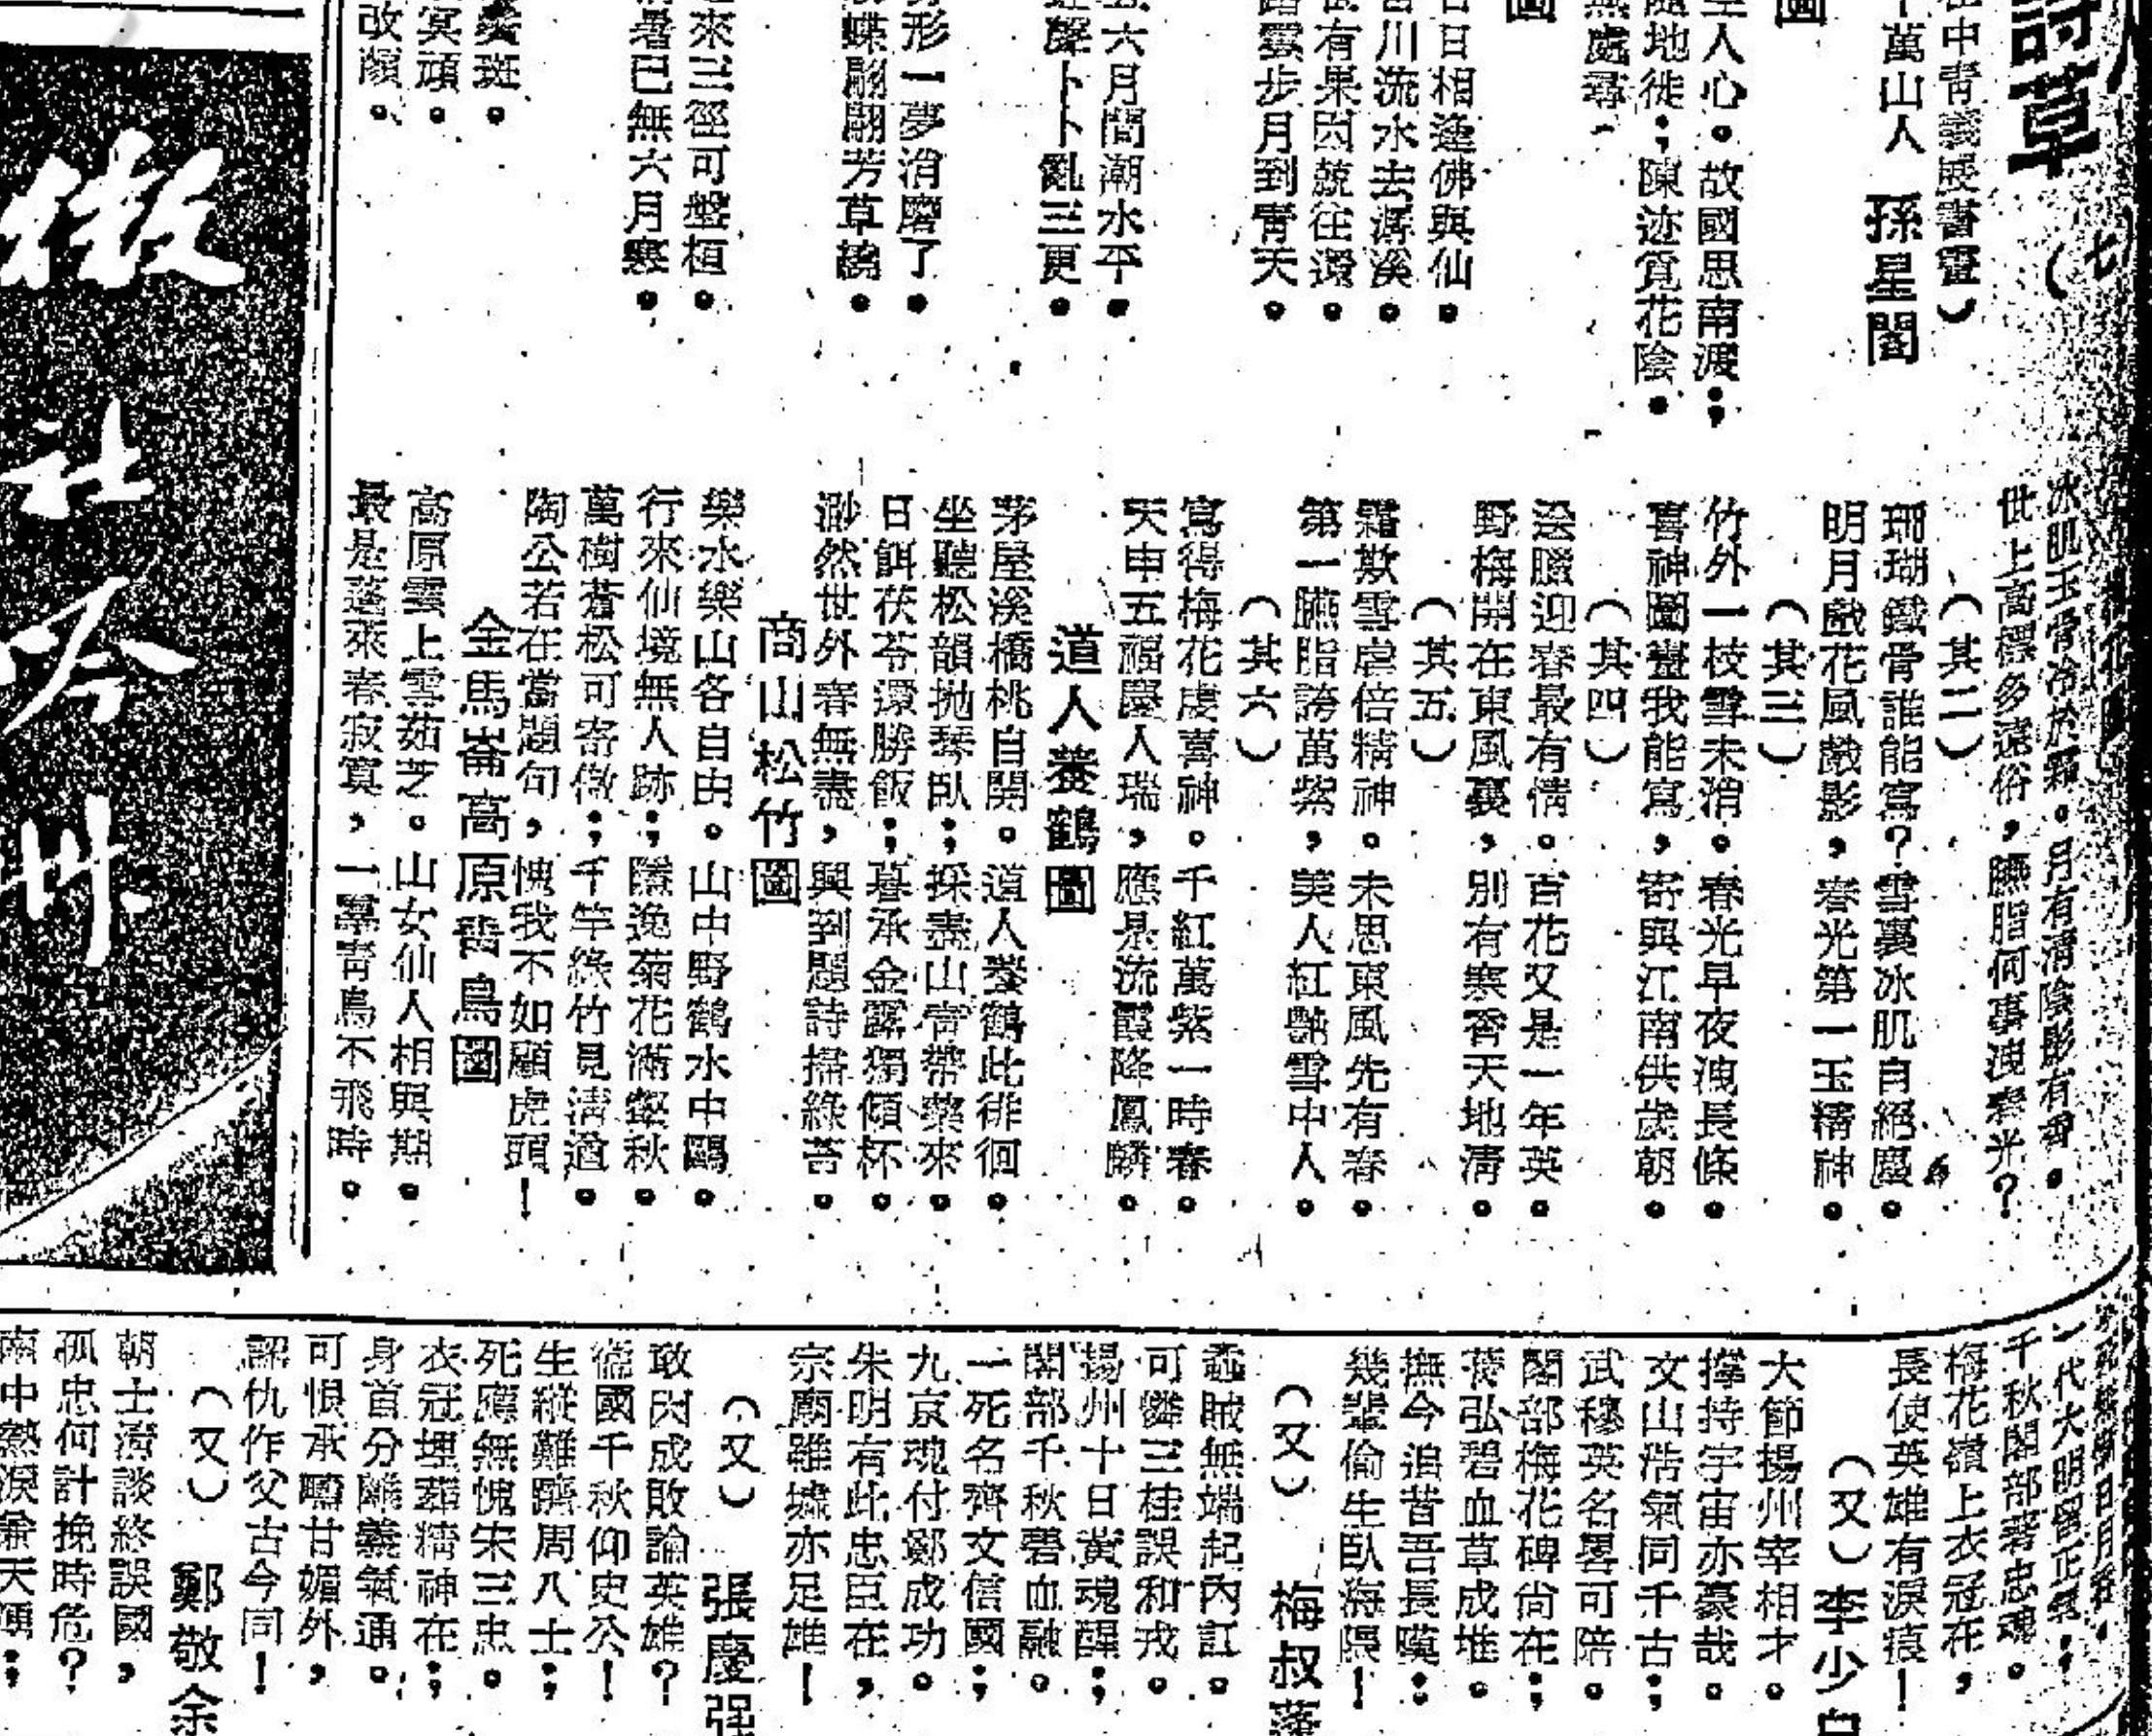 詩草(七)
在中青義展書畫)
千萬山人 孫星閣
圖
人心。故國思南渡;
隨地徙;陳迹寬花陰。
無處尋。
圖
日日相逢佛與仙。
百川流水去潺溪。
有果因競往還。
踏雲步月到青天。
六月間潮水平。
聲卜卜亂三更。
形一夢消磨了。
蝶翩翩芳草鵑。
來三徑可盤桓。
暑已無六月寒。
斑。
冥頑。
改顏。
冰肌玉骨冷於霜。月有清陰影有香。
世上高標多遠俗,臙脂何事洩春光?
(其二)
珊瑚鐵骨誰能寫?雪裏冰肌自絕塵。
明月戲花風戲影,春光第一玉精神。
(其三)
竹外一枝雪未消。春光早夜洩長條。
喜神圖畫我能寫,寄與江南供歲朝。
(其四)
送臘迎春最有情。百花又是一年英。
野梅開在東風裏,別有寒香天地清。
(其五)
霜欺雪虐倍精神。未思東風先有春。
第一臙脂誇萬紫,美人紅艷雪中人。
(其六)
寫得梅花虔喜神。千紅萬紫一時春。
天申五福慶人瑞,應是流霞降鳳麟。
道人養鶴圖
茅屋溪橋桃自開。道人養鶴此徘徊。
坐聽松韻拋琴臥;採盡山膏帶藥來。
日餌茯苓還勝飯;暮承金露獨傾杯。
渺然世外春無盡,興到題詩掃綠苔。
商山松竹圖
樂水樂山各自由。山中野鶴水中鷗。
行來仙境無人跡;隱逸菊花滿壑秋。
萬樹蒼松可寄傲;千竿綠竹見清遒。
陶公若在當題句,愧我不如顧虎頭!
金馬崙高原青鳥圖
高原雲上雪茹芝。山女仙人相與期。
最是蓬萊春寂寞,一羣青鳥不飛時。
徽社吟艸
一代大明留正氣;
千秋閣部著忠魂。
梅花嶺上衣冠在,
長使英雄有淚痕!
(又)李少白
大節揚州宰相才。
撐持宇宙亦豪哉。
文山浩氣同千古;
武穆英名畧可陪。
閣部梅花碑尚在;
萇弘碧血草成堆。
撫今追昔吾長嘆:
幾輩偷生臥海隈!
(又) 梅叔
逆賊無端起內訌。
可憐三桂誤和戎。
揚州十日黃魂醒;
閣部千秋碧血融。
一死名齊文信國;
九京魂付鄭成功。
朱明有此忠臣在,
宗廟雖墟亦足雄!
(又) 張慶强
敢因成敗論英雄?
徇國千秋仰史公!
生縱難躋周八士;
死應無愧宋三忠。
衣冠埋葬精神在;
身首分離義氣通。
可恨承疇甘媚外,
認仇作父古今同!
(又) 鄭敬余
朝士清談終誤國,
孤忠何計挽時危?
南中熱淚兼天湧;